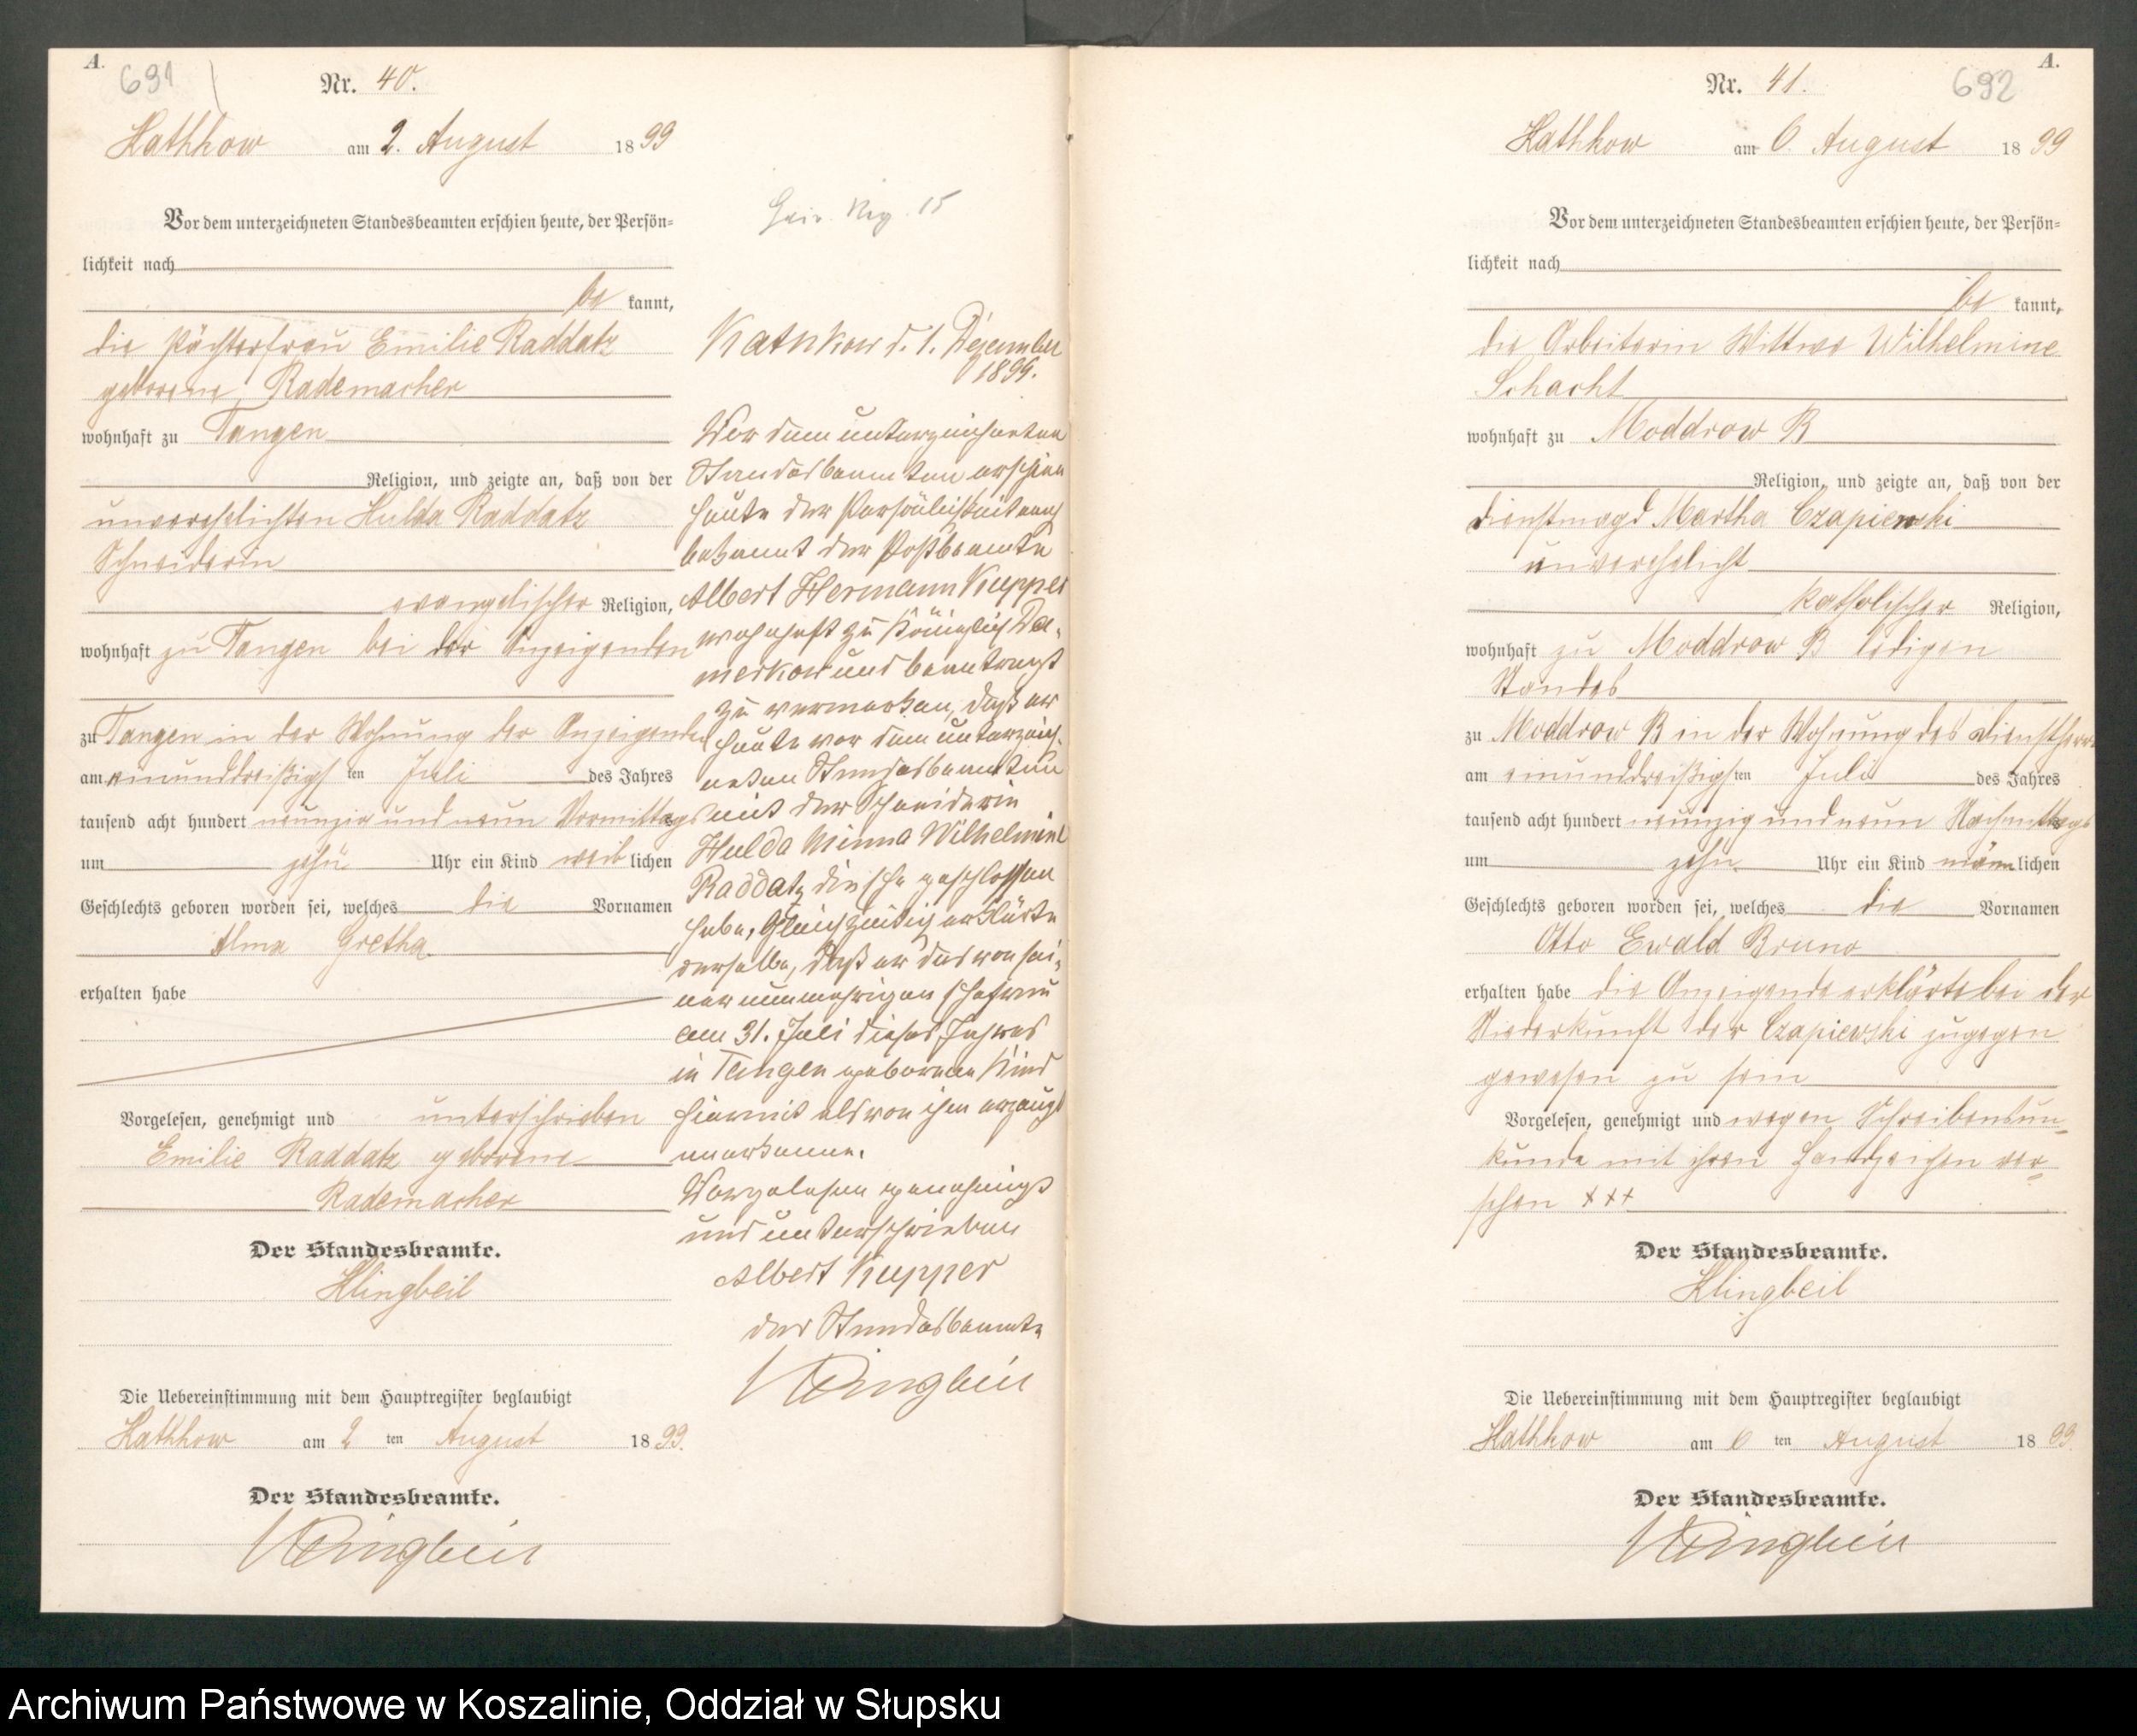 A.
691
Nr. 40.
Kathkow am 2. August 1899
Vor dem unterzeichneten Standesbeamten erschien heute, der Persön-
lichkeit nach
bekannt,
die Pächterfrau Emilie Raddatz
geborene Rademacher
wohnhaft zu Tangen
Religion, und zeigte an, daß von der
unverehelichten Hulda Raddatz
Schneiderin
evangelischer Religion,
wohnhaft zu Tangen bei der Anzeigenden
zu Tangen in der Wohnung der Anzeigenden
am einunddreißigsten Juli des Jahres
tausend acht hundert neunzig und neun Vormittags
um zehn Uhr ein Kind weiblichen
Geschlechts geboren worden sei, welches die Vornamen
Alma Gretha
erhalten habe
Vorgelesen, genehmigt und unterschrieben
Emilie Raddatz geborene
Rademacher
Der Standesbeamte.
Klingbeil
Die Uebereinstimmung mit dem Hauptregister beglaubigt
Kathkow am 2ten August 1899.
Der Standesbeamte.
Klingbeil
Reg. 15
Kathkow d. 1. Dezember
1899.
Vor dem unterzeichneten
Standesbeamten erschien
heute der Persönlichkeit nach
bekannt der Postbeamte
Albert Hermann Kupper
wohnhaft zu Königlich Da-
merkow und beantragt
zu vermerken, daß er
heute vor dem unterzeich-
neten Standesbeamten
mit der Schneiderin
Hulda Minna Wilhelmine
Raddatz die Ehe geschlossen
habe, Gleichzeitig erklärte
derselbe, daß er das von sei-
ner nunmehrigen Ehefrau
am 31. Juli dieses Jahres
in Tangen geborene Kind
hiermit als von ihm erzeugt
anerkenne.
Vorgelesen genehmigt
und unterschrieben
Albert Kupper
der Standesbeamte
Klingbeil
A.
692
Nr. 41.
Kathkow am 6. August 1899
Vor dem unterzeichneten Standesbeamten erschien heute, der Persön-
lichkeit nach
bekannt,
die Arbeiterin Wittwe Wilhelmine
Schacht
wohnhaft zu Moddrow B
Religion, und zeigte an, daß von der
Dienstmagd Martha Czapiewski
unverehelicht
katholischer Religion,
wohnhaft zu Moddrow B ledigen
Standes
zu Moddrow B in der Wohnung des Dienstherrn
am einunddreißigsten Juli des Jahres
tausend acht hundert neunzig und neun Nachmittags
um zehn Uhr ein Kind männlichen
Geschlechts geboren worden sei, welches die Vornamen
Otto Ewald Bruno
erhalten habe die Anzeigende erklärte bei der
Niederkunft der Czapiewski zugegen
gewesen zu sein
Vorgelesen, genehmigt und wegen Schreibensun-
kunde mit ihren Handzeichen ver-
sehen +++
Der Standesbeamte.
Klingbeil
Die Uebereinstimmung mit dem Hauptregister beglaubigt
Kathkow am 6ten August 1899.
Der Standesbeamte.
Klingbeil
Archiwum Państwowe w Koszalinie, Oddział w Słupsku